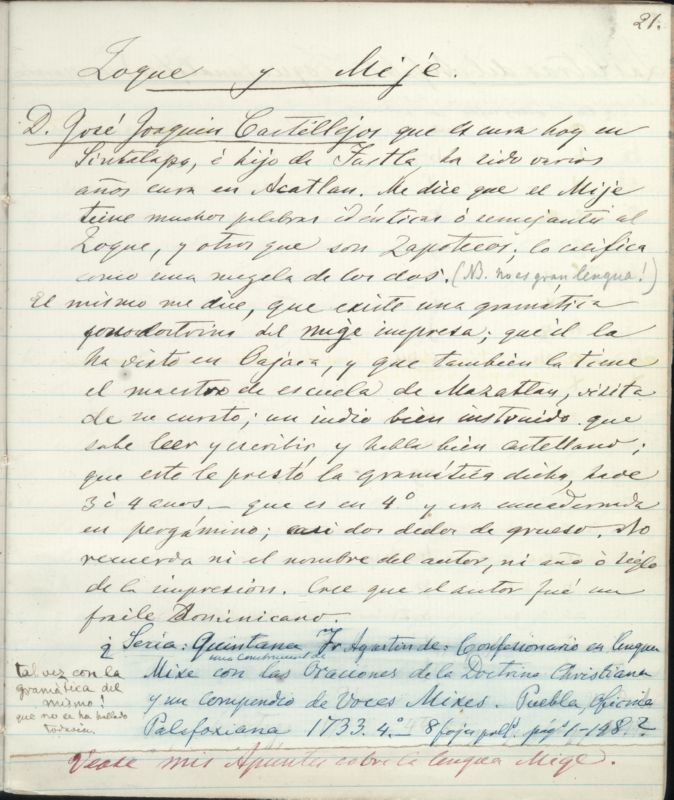 21.
Zoque y Mije.
D. José Joaquin Castéllejos que es cura hoy en
Sintalapa, é hijo de Tustla, ha sido varios
años cura en Acatlan. Me dice que el Mije
tiene muchas palabras idénticas ó semejantes al
Zoque, y otras que son Zapotecas; lo califica
como una mezcla de los dos. (NB. no es gran lengua!)
El mismo me dice, que existe una gramática
del mige impresa; que él la
ha visto en Oajaca, y que también la tiene
el maestro de escuela de Mazatlan, visita
de su curato; un indio bien instruido que
sabe leer y escribir, y habla bien castellano;
que este le prestó la gramática dicha, hace
3 ó 4 anos – que es en 4º y era encuadernada
en pergámino; casi dos dedos de grueso. No
recuerda ni el nombre del autor, ni año ó siglo
de la impresión. Cree que el autor fué un
fraile Dominicano.
¿ Seria: Quintana, Fr Agustin de: Confesionario en lengua
Mixe con las Oraciones de la Doctrina Christiana
y un compendio de Voces Mixes. Puebla, Oficina
Palafoxiana 1733. 4º – 8 fojas pags 1–148.?
tal vez con la
gramática del
mismo!
que no se ha hallado
todavia.
Vease mis Apuntes sobre la lengua Mige.